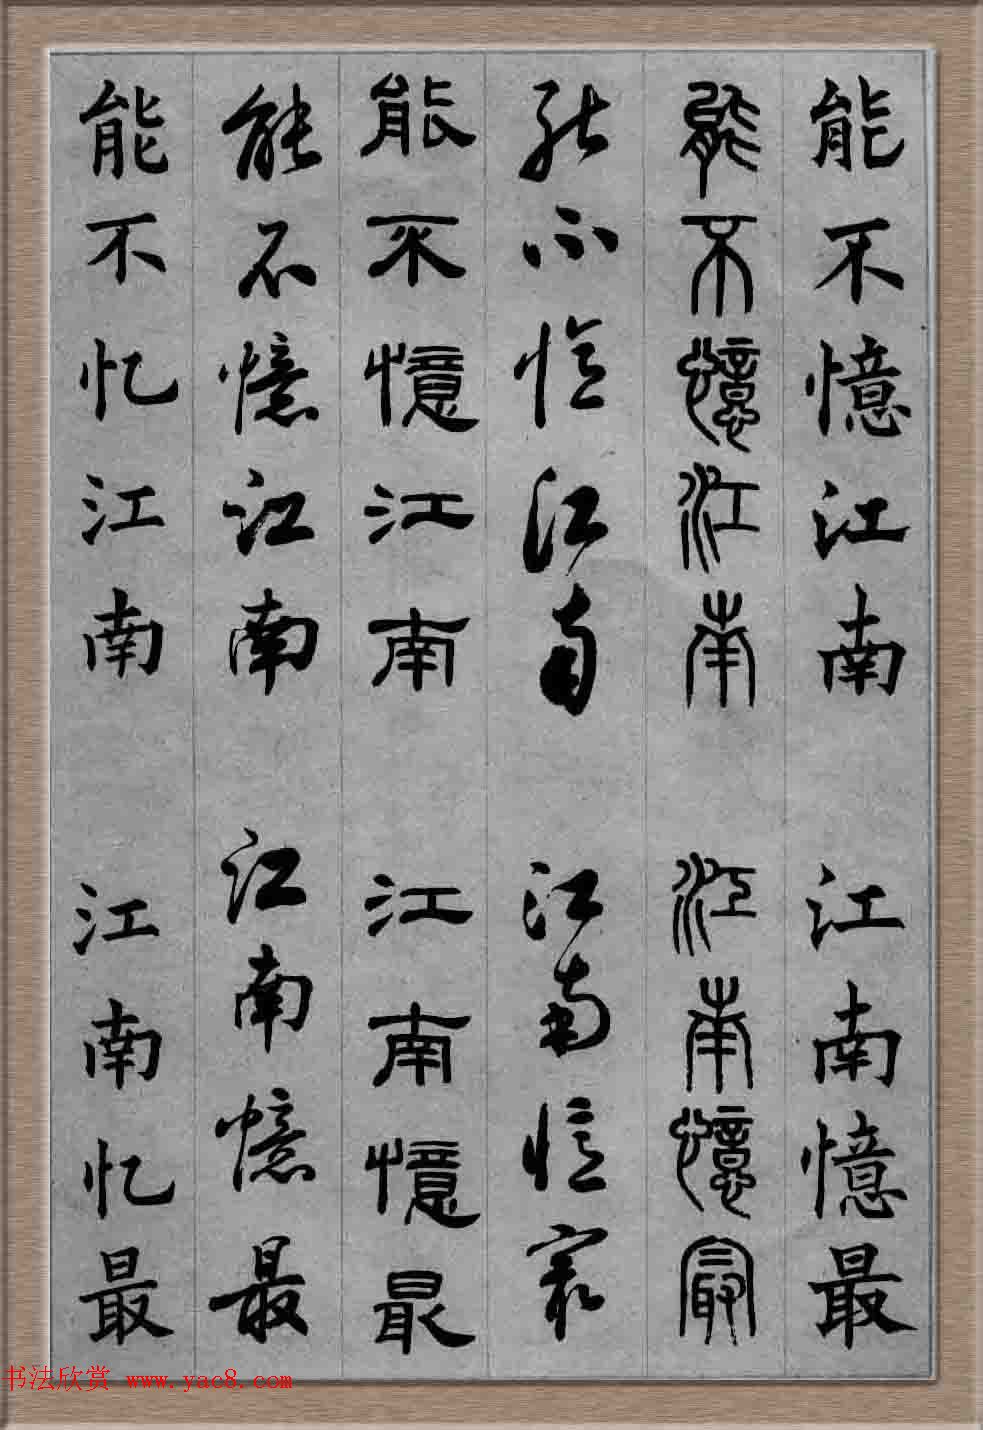 能不憶江南 江南憶最
能不憶江南 江南憶最
能不憶江南 江南憶最
能不憶江南 江南憶最
能不憶江南 江南憶最
能不忆江南 江南忆最
书法欣赏 www.yac8.com